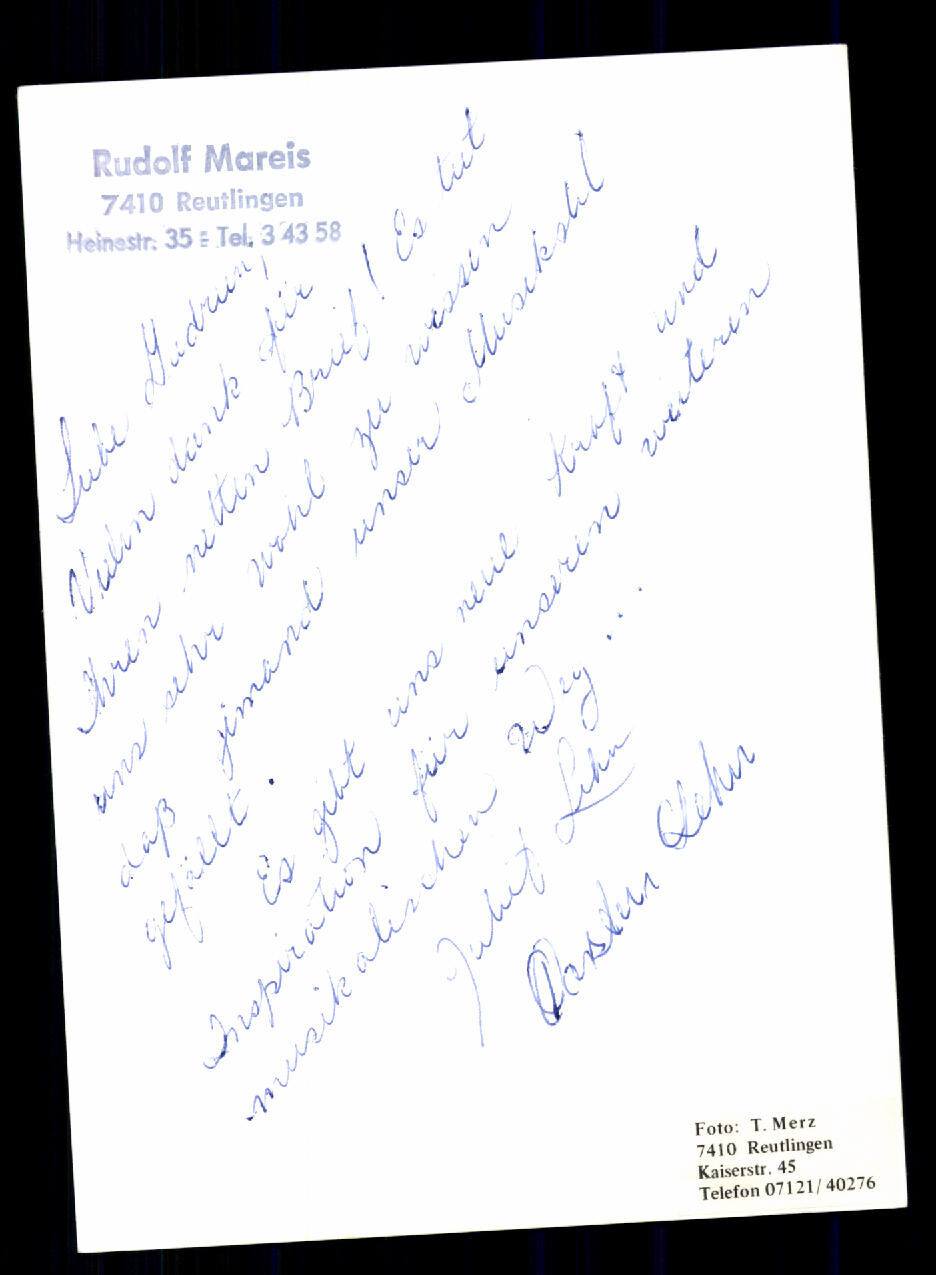 Rudolf Mareis
7410 Reutlingen
Heinestr. 35 = Tel. 3 43 58
Liebe Gudrun!
Vielen dank für
Ihren netten Brief! Es tut
uns sehr wohl zu wissen
daß jemand unser Musikstil
gefällt.
Es gibt uns neue Kraft und
Inspiration für unseren weiteren
musikalischen Weg ...
Lehn
Carsten Lehn
Foto: T. Merz
7410 Reutlingen
Kaiserstr. 45
Telefon 07121/40276